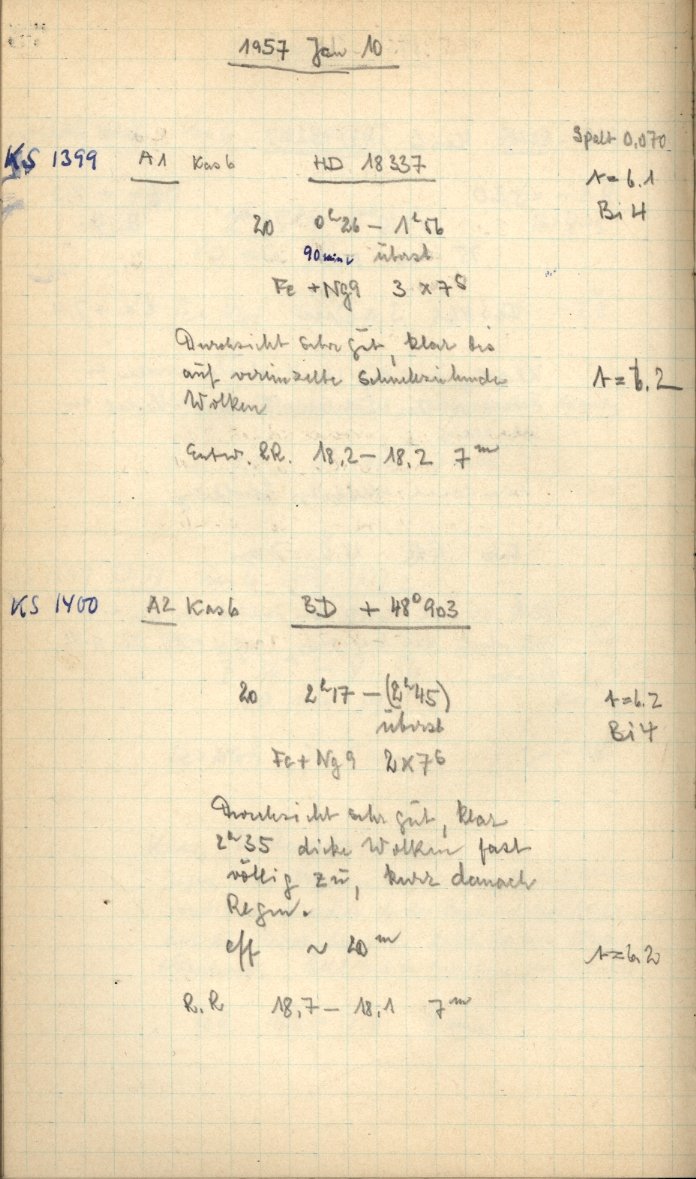 1957 Jan 10
Spalt 0,070
KS 1399 A1 Kas b HD 18337
t = 6.1
Bi 4
20 0h26 – 1h56
90 min überst
Fe + Ng9 3 x 7s
Durchsicht sehr gut, klar bis
auf vereinzelte schnellziehende
Wolken
t = 6.2
Entw. RR. 18,2 – 18,2 7m
KS 1400 A2 Kas b BD + 48°903
20 2h17 – (2h45)
t = 6.2
überst
Bi 4
Fe + Ng9 2 x 7s
Durchsicht sehr gut, klar
2h35 dicke Wolken fast
völlig zu, kurz danach
Regen.
eff ~ 20m
t = 6.2
R.R 18,7 – 18,1 7m